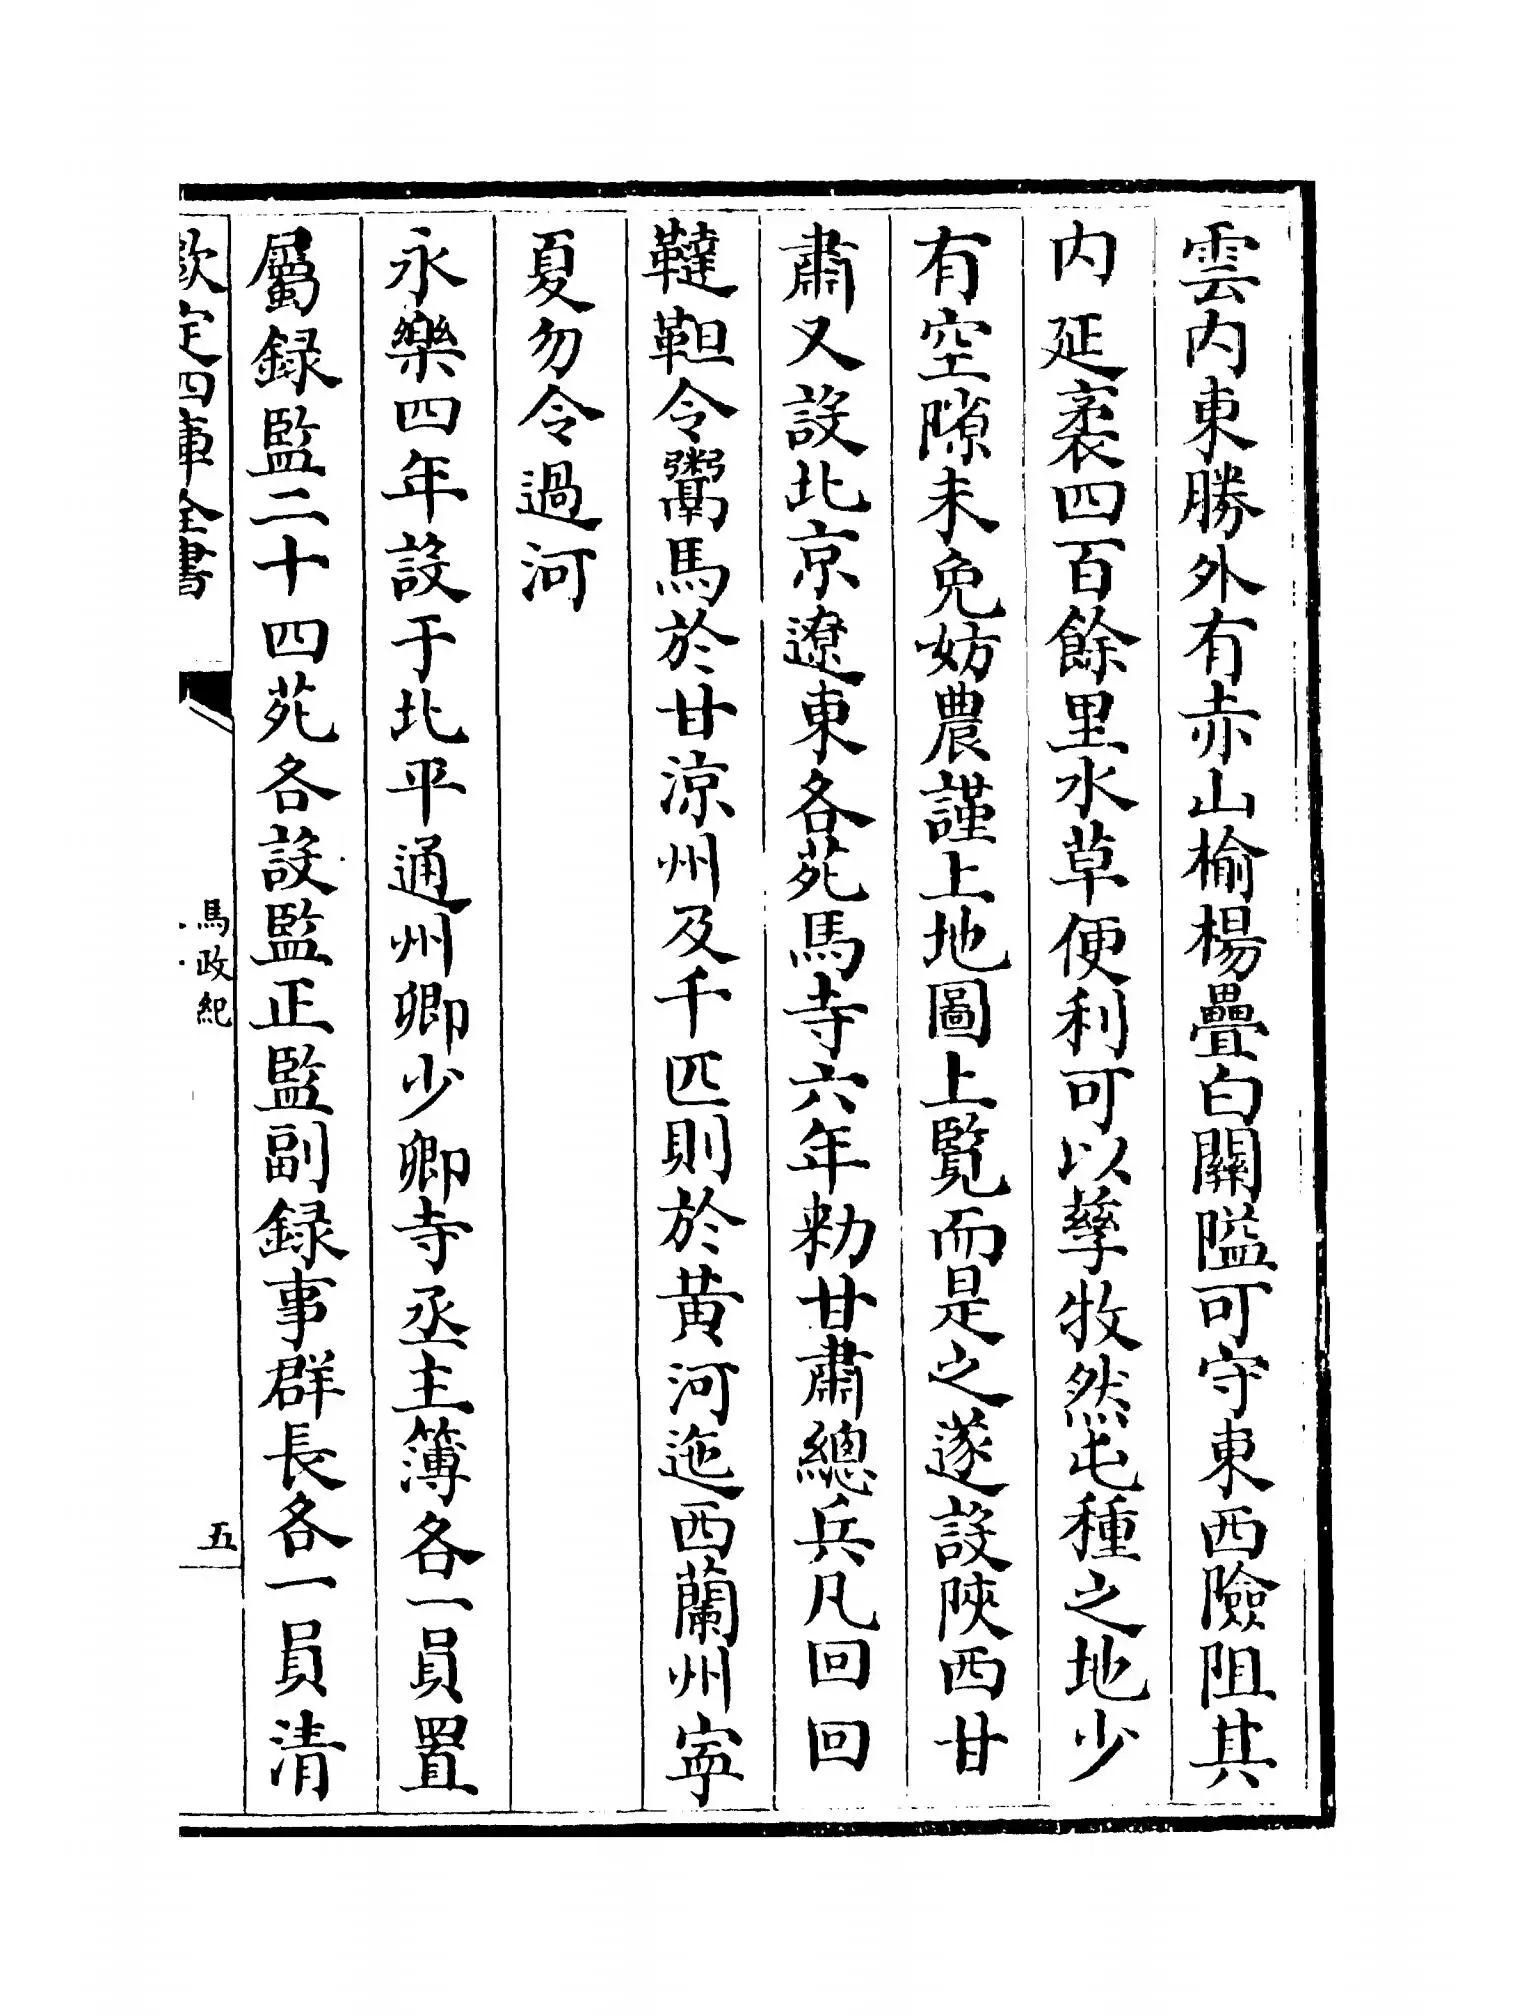 雲内東勝外有赤山榆楊疊白關隘可守東西險阻其
内延袤四百餘里水草便利可以孳牧然屯種之地少
有空隙未免妨農謹上地圖上覽而是之遂設陜西甘
肅又設北京遼東各苑馬寺六年勑甘肅總兵凡回回
韃靼令鬻馬於甘涼州及千匹則於黃河迤西蘭州寧
夏勿令過河
永樂四年設于北平通州卿少卿寺丞主簿各一員置
屬録監二十四苑各設監正監副録事群長各一員清
欽定四庫全書
馬政紀
五